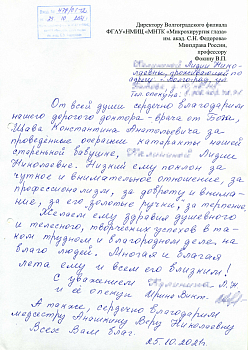 Директору Волгоградского филиала
ФГАУ«НМИЦ «МНТК «Микрохирургия глаза»
им. акад. С.Н. Федорова»
Минздрава России,
профессору
Фокину В.П.
Лидии Нико-
лаевны, проживающей по
адресу: Волгоград, ул.
От всей души сердечно благодарим
нашего дорогого доктора - врача от Бога,
Константина Анатольевича за
проведённые операции катаракты нашей
бабушке, Лидии
Николаевне. Низкий ему поклон за
чуткое и внимательное отношение, за
профессионализм, за доброту и внима-
ние, за его золотые ручки, за терпение.
Желаем ему здравия душевного
и телесного, творческих успехов в та-
ком трудном и благородном деле на
благо людей. Многая и благая
лета ему и всем его близким!
С уважением Л.Н
и её опекун Ирина Викт.
А также, сердечно благодарим
медсестру Аношкину Веру Николаевну
Всех Вам благ.
25.10.2021г.